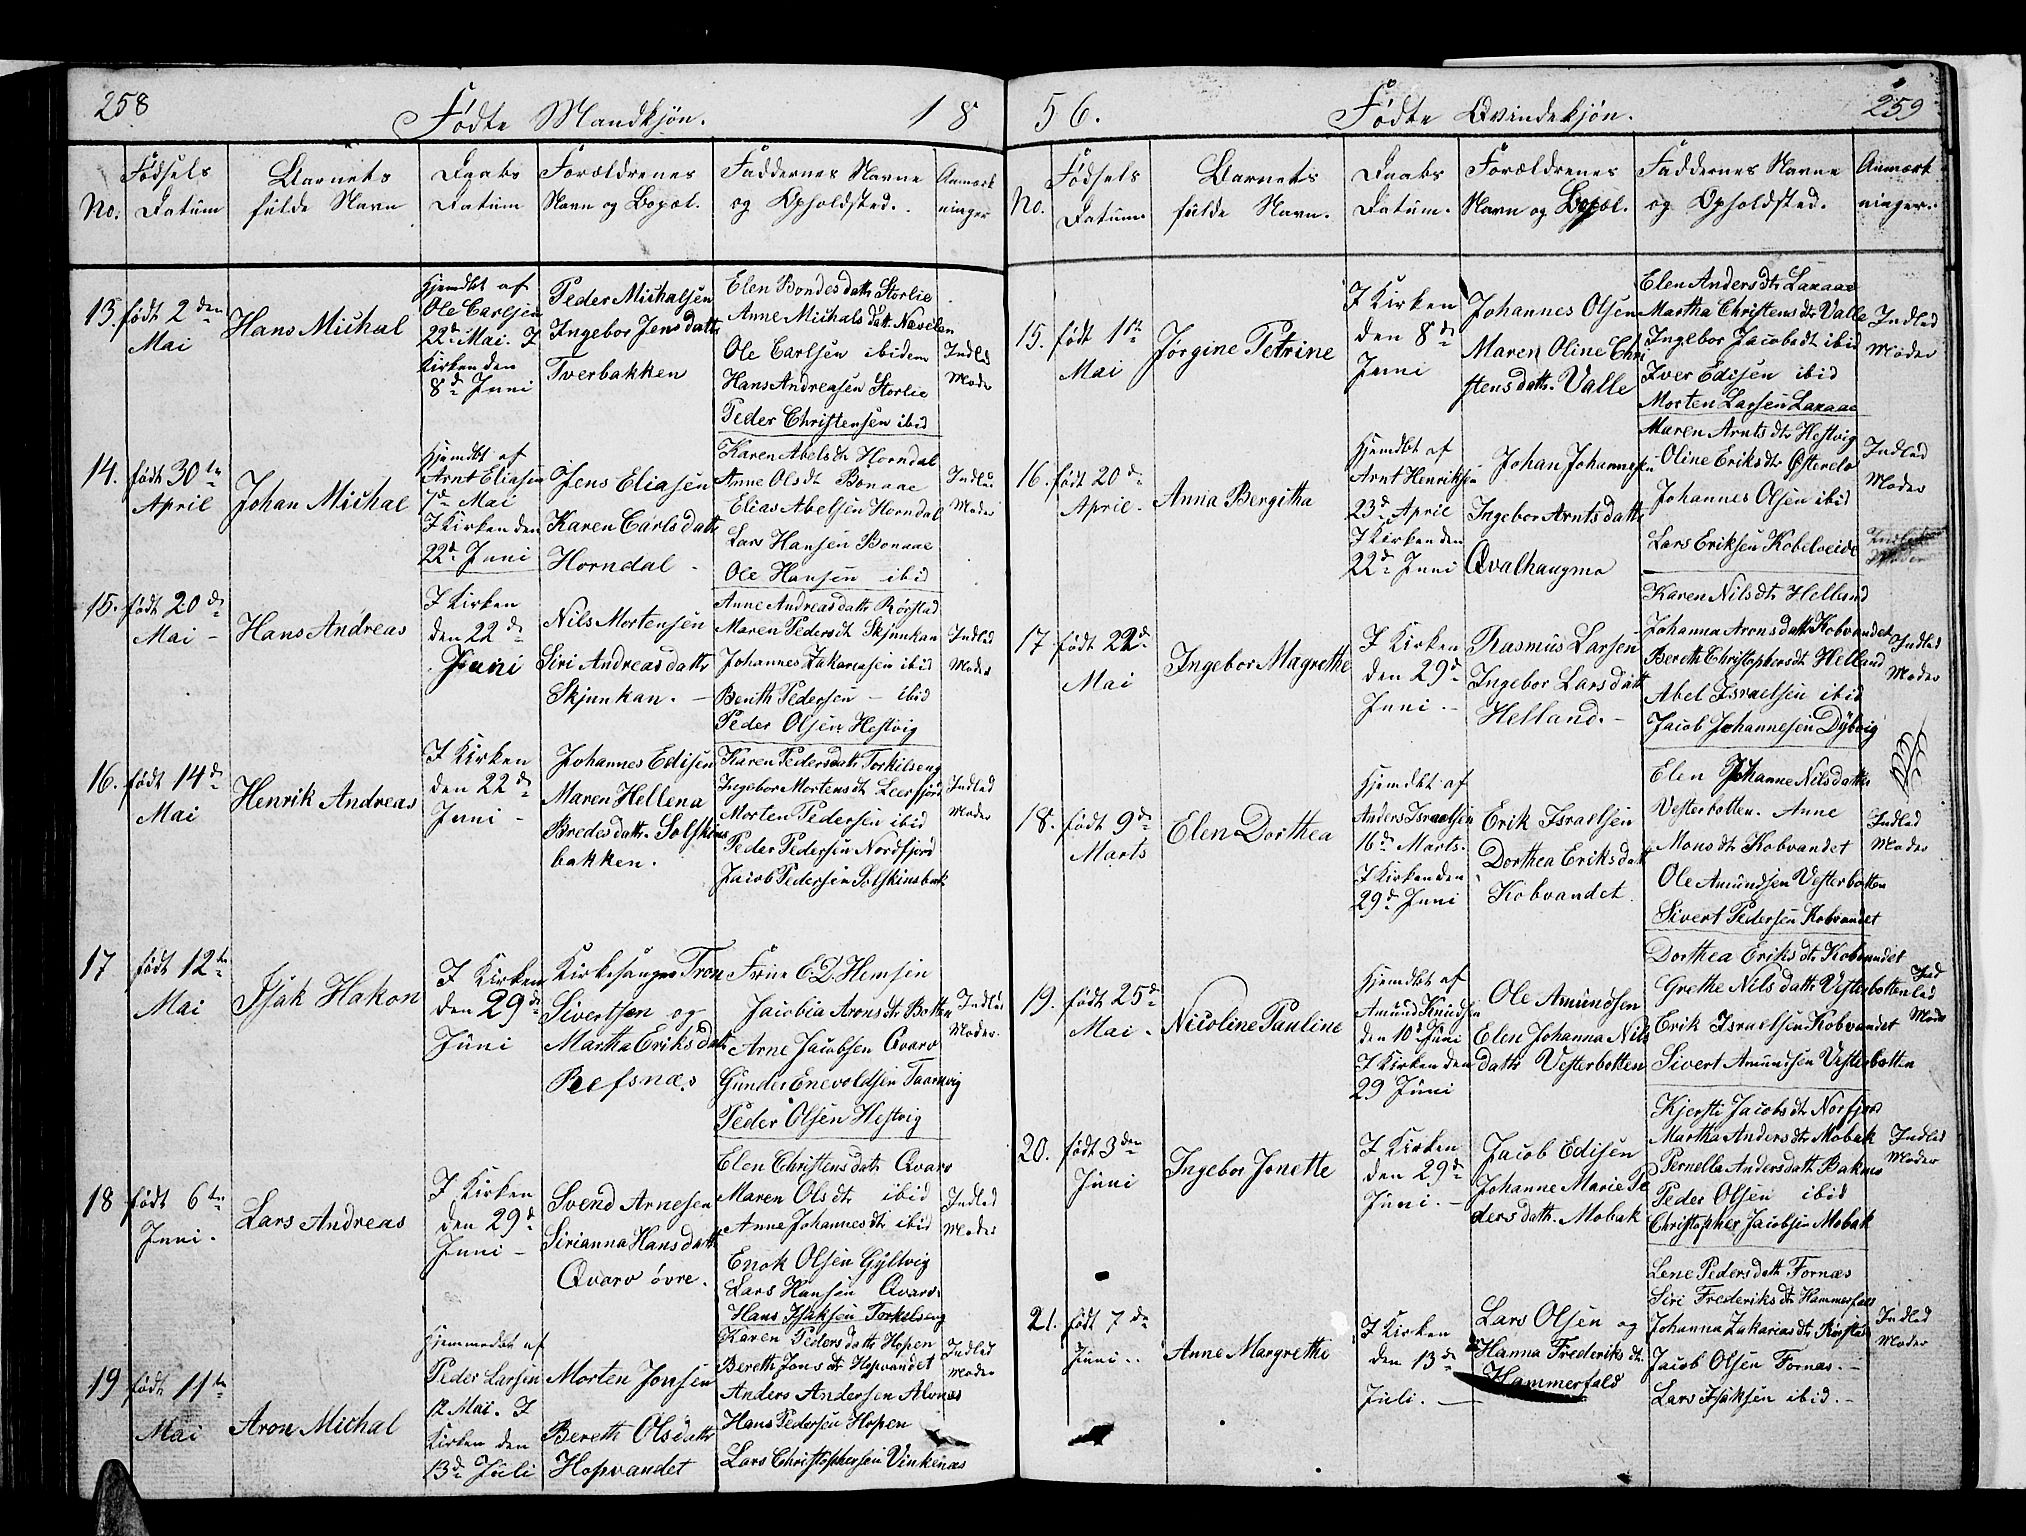 258
Fødte Mandkjøn.
18
No.
Fødsels
Datum
Barnets
fulde Navn
Daabs
Datum
Forældrenes
Navn og Bopæl.
Faddernes Navne
og Opholdsted.
Anmærk
ninger
13.
født 2den
Mai
Hans Michal
Hjemdbt af
Ole Carlsen
22de Mai. I
Kirken den
8de Juni
Peder Michalsen
Ingebor Jensdattr
Tverbakken
Elen Bondesdattr Storlie
Anne Michalsdatt Nævelen
Ole Carlsen ibidem
Hans Andreasen Storlie
Peder Christensen ibid
Indld
Moder
14.
født 30te
April
Johan Michal
Hjemdbt af
Arnt Eliasen
7de Mai
I Kirken den
22de Juni
Jens Eliasen
Karen Carlsdattr
Horndal
Karen Abelsdtr Horndal
Anne Olsdt Bonaae
Elias Abelsen Horndal
Lars Hansen Bonaae
Ole Hansen ibid
Indld
Moder
15.
født 20de
Mai
Hans Andreas
I Kirken
den 22de
Juni
Nils Mortensen
Siri Andreasdattr
Skjunkan.
Anne Andreasdattr Rørstad
Maren Pedersdt Skjunkan
Johannes Zakariasen ibid
Benth Pedersen - ibid
Peder Olsen Hestvig
Indled
Moder
16.
født 14de
Mai
Henrik Andreas
I Kirken
den 22de
Juni
Johannes Edisen
Maren Hellena
Bredesdattr Solskins
bakken.
Karen Pedersdattr Torkilseng
Ingebor Mortensdt Leerfjord
Morten Pedersen ibid
Peder Pedersen Nordfjord
Jacob Pedersen Solskinsbak
Indled
Moder
17
født 12te
Mai
Isak Hakon
I Kirken
den 29de
Juni
Kirkesanger Tron
Sivertsen og
Martha Eriksdatr
Refsnæs
Frue E. D. Hemsen
Jacobia Aronsdtr Botten
Arne Jacobsen Qvarv
Gunder Enevoldsen Taarnvig
Peder Olsen Hestvig
Indled
Moder
18
født 6te
Juni.
Lars Andreas
I Kirken
den 29de
Juni
Svend Arnesen
Sirianna Hansdattr
Qvarv övre.
Elen Christensdatr Qvarv
Maren Olsdtr ibid
Anne Johannesdtr ibid
Enok Olsen Gyltvig
Lars Hansen Qvarv
Hans Isaksen Torkelseng
Indled
Moder
19
født 11te
Mai
Aron Michal
Hjemmedbt af
Peder Larsen
12 Mai. I
Kirken den
13de Juli
Morten Jonsen
Bereth Olsdattr
Hopvandet
Karen Pedersdattr Hopen
Bereth Jonsdtr Hopvandet
Anders Andersen Alvnæs
Hans Pedersen Hopen
Lars Christophersen Vinkenæs
Indled
Moder
56.
Fødte Qvindekjön.
259
No.
Fødsels
Datum.
Barnets
fulde Navn.
Daabs
Datum.
Forældrenes
Navn og Bopæl.
Faddernes Navne
og Opholdsted.
Anmærk
ninger.
15.
født 1ste
Mai
Jørgine Petrine
I Kirken
den 8de
Juni
Johannes Olsen
Maren Oline Chri
stensdattr. Valle
Elen Andersdtr Laxaae
Martha Christensdtr Valle
Ingebor Jacobsdt ibid
Iver Edisen ibid
Morten Larsen Laxaae
Indled
Moder
16.
født 20de
April.
Anna Bergitha
Hjemdbt af
Arnt Henriksen
23de April
I Kirken den
22de Juni
Johan Johannesen
Ingebor Arntsdattr
Qvalhaugmo
Maren Arntsdtr Hestvig
Oline Eriksdtr Østerelv
Johannes Olsen ibid
Lars Eriksen Kobelveide
Indled
Moder
17
født 22de
Mai
Ingebor Magrethe
I Kirken
den 29de
Juni.
Rasmus Larsen
Ingebor Larsdattr
Helland.
Karen Nilsdtr Helland
Johanna Aronsdattr Kobvandet
Bereth Christophersdt Helland
Abel Israelsen ibid
Jacob Johannesen Dybvig
Indled
Moder
18.
født 9de
Marts
Elen Dorthea
Hjemdbt af
Anders Israelsen
16de Marts.
I Kirken den
29de Juni
Erik Israelsen
Dorthea Eriksdatt
Kobvandet
Elen Johanne Nilsdattr
Vesterbotten. Anne
Monsdt Kobvandet
Ole Amundsen Vesterbotten
Sivert Pedersen Kobvandet
Indled
Moder
19.
født 25de
Mai
Nicoline Pauline
Hjemdbt af
Amund Knudsen
den 10de Juni
I Kirken den
29 Juni
Ole Amundsen
Elen Johanna Nils
dattr Vesterbotten
Dorthea Eriksdtr Kobvandet
Grethe Nilsdattr Vesterbotten
Erik Israelsen Kobvandet
Sivert Amundsen Vesterbotten
Ind
led
Mode
20.
født 3den
Juni
Ingebor Jonette
I Kirken
den 29de
Juni.
Jacob Edisen
Johanne Marie Pe
dersdattr. Mobak
Kjersti Jacobsdtr Norfjord
Martha Andersdtr Mobak
Pernella Andersdattr Bakmo
Peder Olsen ibid
Christopher Jacobsen Mobak
Indled
Moder
21.
født 7de
Juni
Anne Margrethe
I Kirken
den 13de
Juli.
Lars Olsen og
Hanna Frederiksdtr.
Hammerfald
Lene Pedersdattr Fornæs
Siri Frederiksdtr Hammerfald
Johanna Zakariasdtr Rørstad
Jacob Olsen Fornæs.
Lars Isaksen ibid.
Indled
Moder